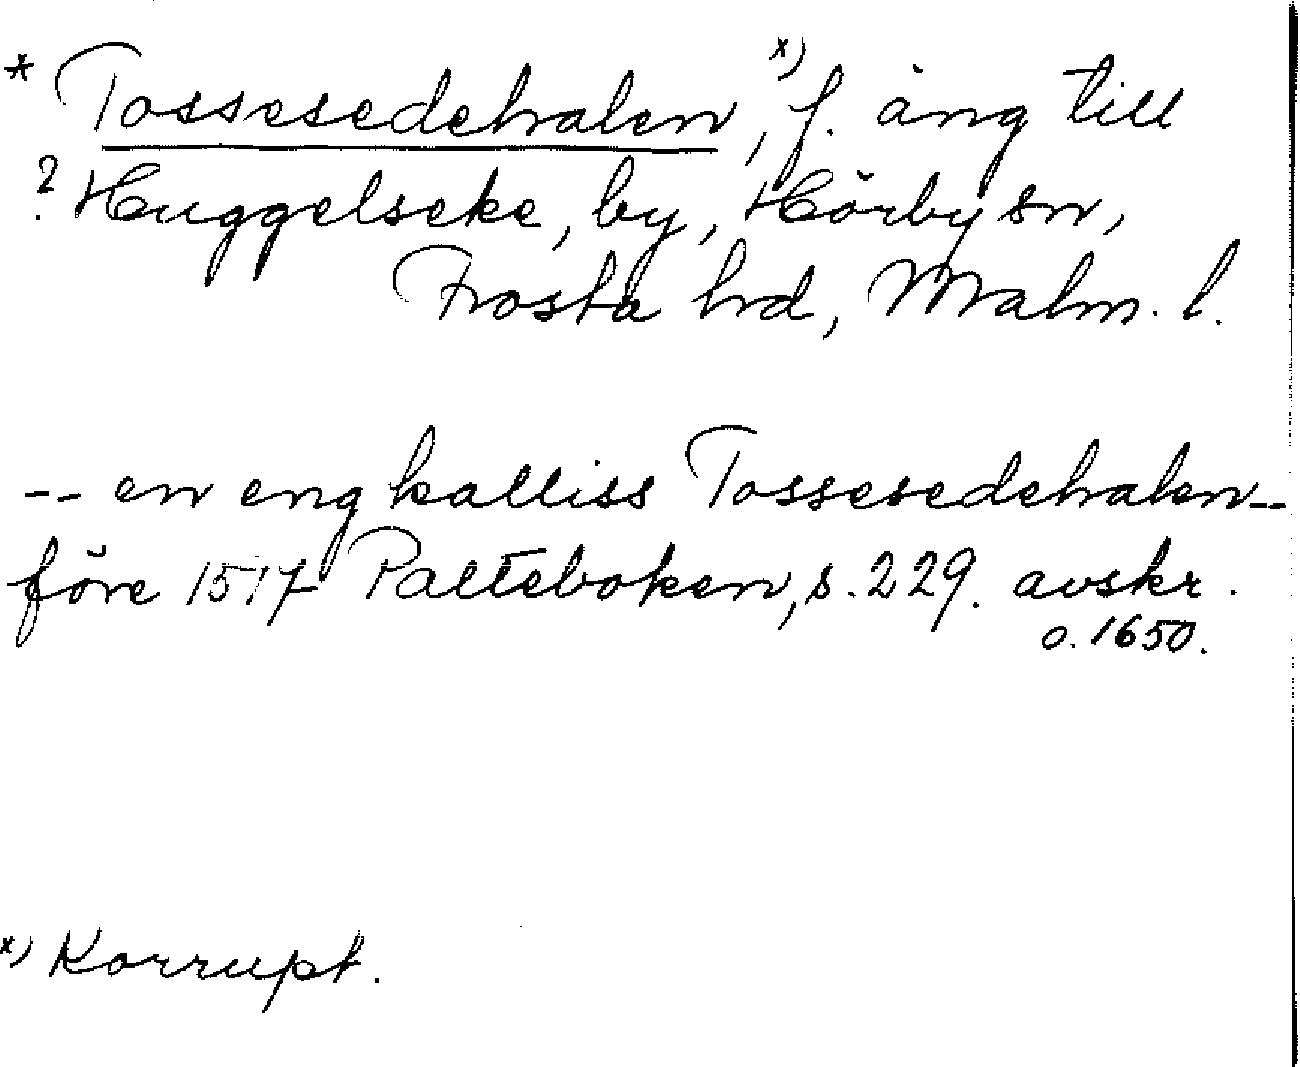 * Tossesedehalen, x) f. äng till
? Huggelseke, by, Hörby sn,
Frosta hd, Malm. l.
-- en eng kalliss Tossesedehalen --
före 1517 Palteboken, s. 229. avskr.
o. 1650.
x) Korrupt.